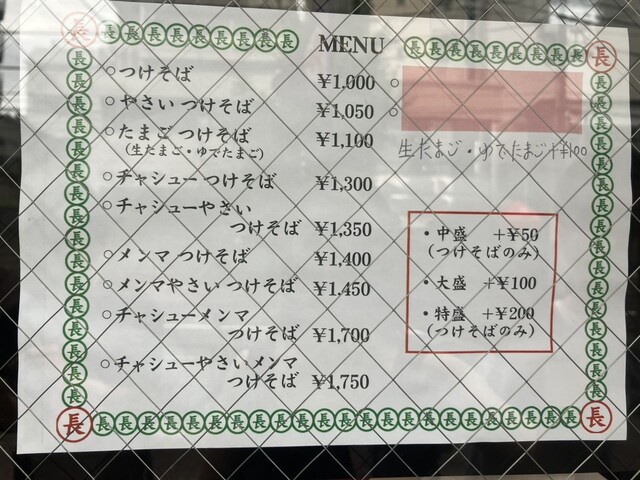 MENU
○つけそば ¥1,000
○やさい つけそば ¥1,050
○たまご つけそば ¥1,100
(生たまご・ゆでたまご)
○チャシュー つけそば ¥1,300
○チャシューやさい
つけそば ¥1,350
○メンマ つけそば ¥1,400
○メンマやさい つけそば ¥1,450
○チャシューメンマ
つけそば ¥1,700
○チャシューやさいメンマ
つけそば ¥1,750
○
○
生たまご・ゆでたまご+¥100
・中盛 +¥50
(つけそばのみ)
・大盛 +¥100
・特盛 +¥200
(つけそばのみ)
長